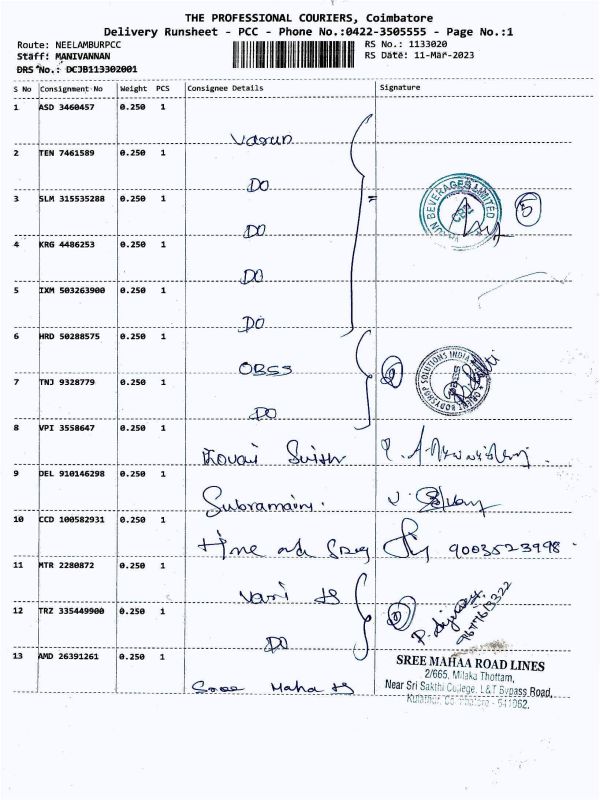 THE PROFESSIONAL COURIERS, Coimbatore
Delivery Runsheet - PCC - Phone No.:0422-3505555 - Page No.:1
Route: NEELAMBURPCC RS No.: 1133020
Staff: MANIVANNAN RS Date: 11-Mar-2023
DRS No.: DCJB113302001
S No Consignment No Weight PCS Consignee Details Signature
1 ASD 3460457 0.250 1 Varun
2 TEN 7461589 0.250 1 DO
3 SLM 315535288 0.250 1 DO
4 KRG 4486253 0.250 1 DO
5 IXM 503263900 0.250 1 DO
VARUN BEVERAGES LIMITED
CBE
5
6 HRD 50288575 0.250 1 OBSS
7 TNJ 9328779 0.250 1 DO
2
ORIENT BODYSHOP SOLUTIONS INDIA
8 VPI 3558647 0.250 1 Kovai
9 DEL 910146298 0.250 1 Subramani.
10 CCD 100582931 0.250 1 9003523998
11 MTR 2280872 0.250 1
12 TRZ 335449900 0.250 1 DO
2
13 AMD 26391261 0.250 1 Sree Maha
SREE MAHAA ROAD LINES
2/665, Milaka Thottam,
Near Sri Sakthi College, L&T Bypass Road,